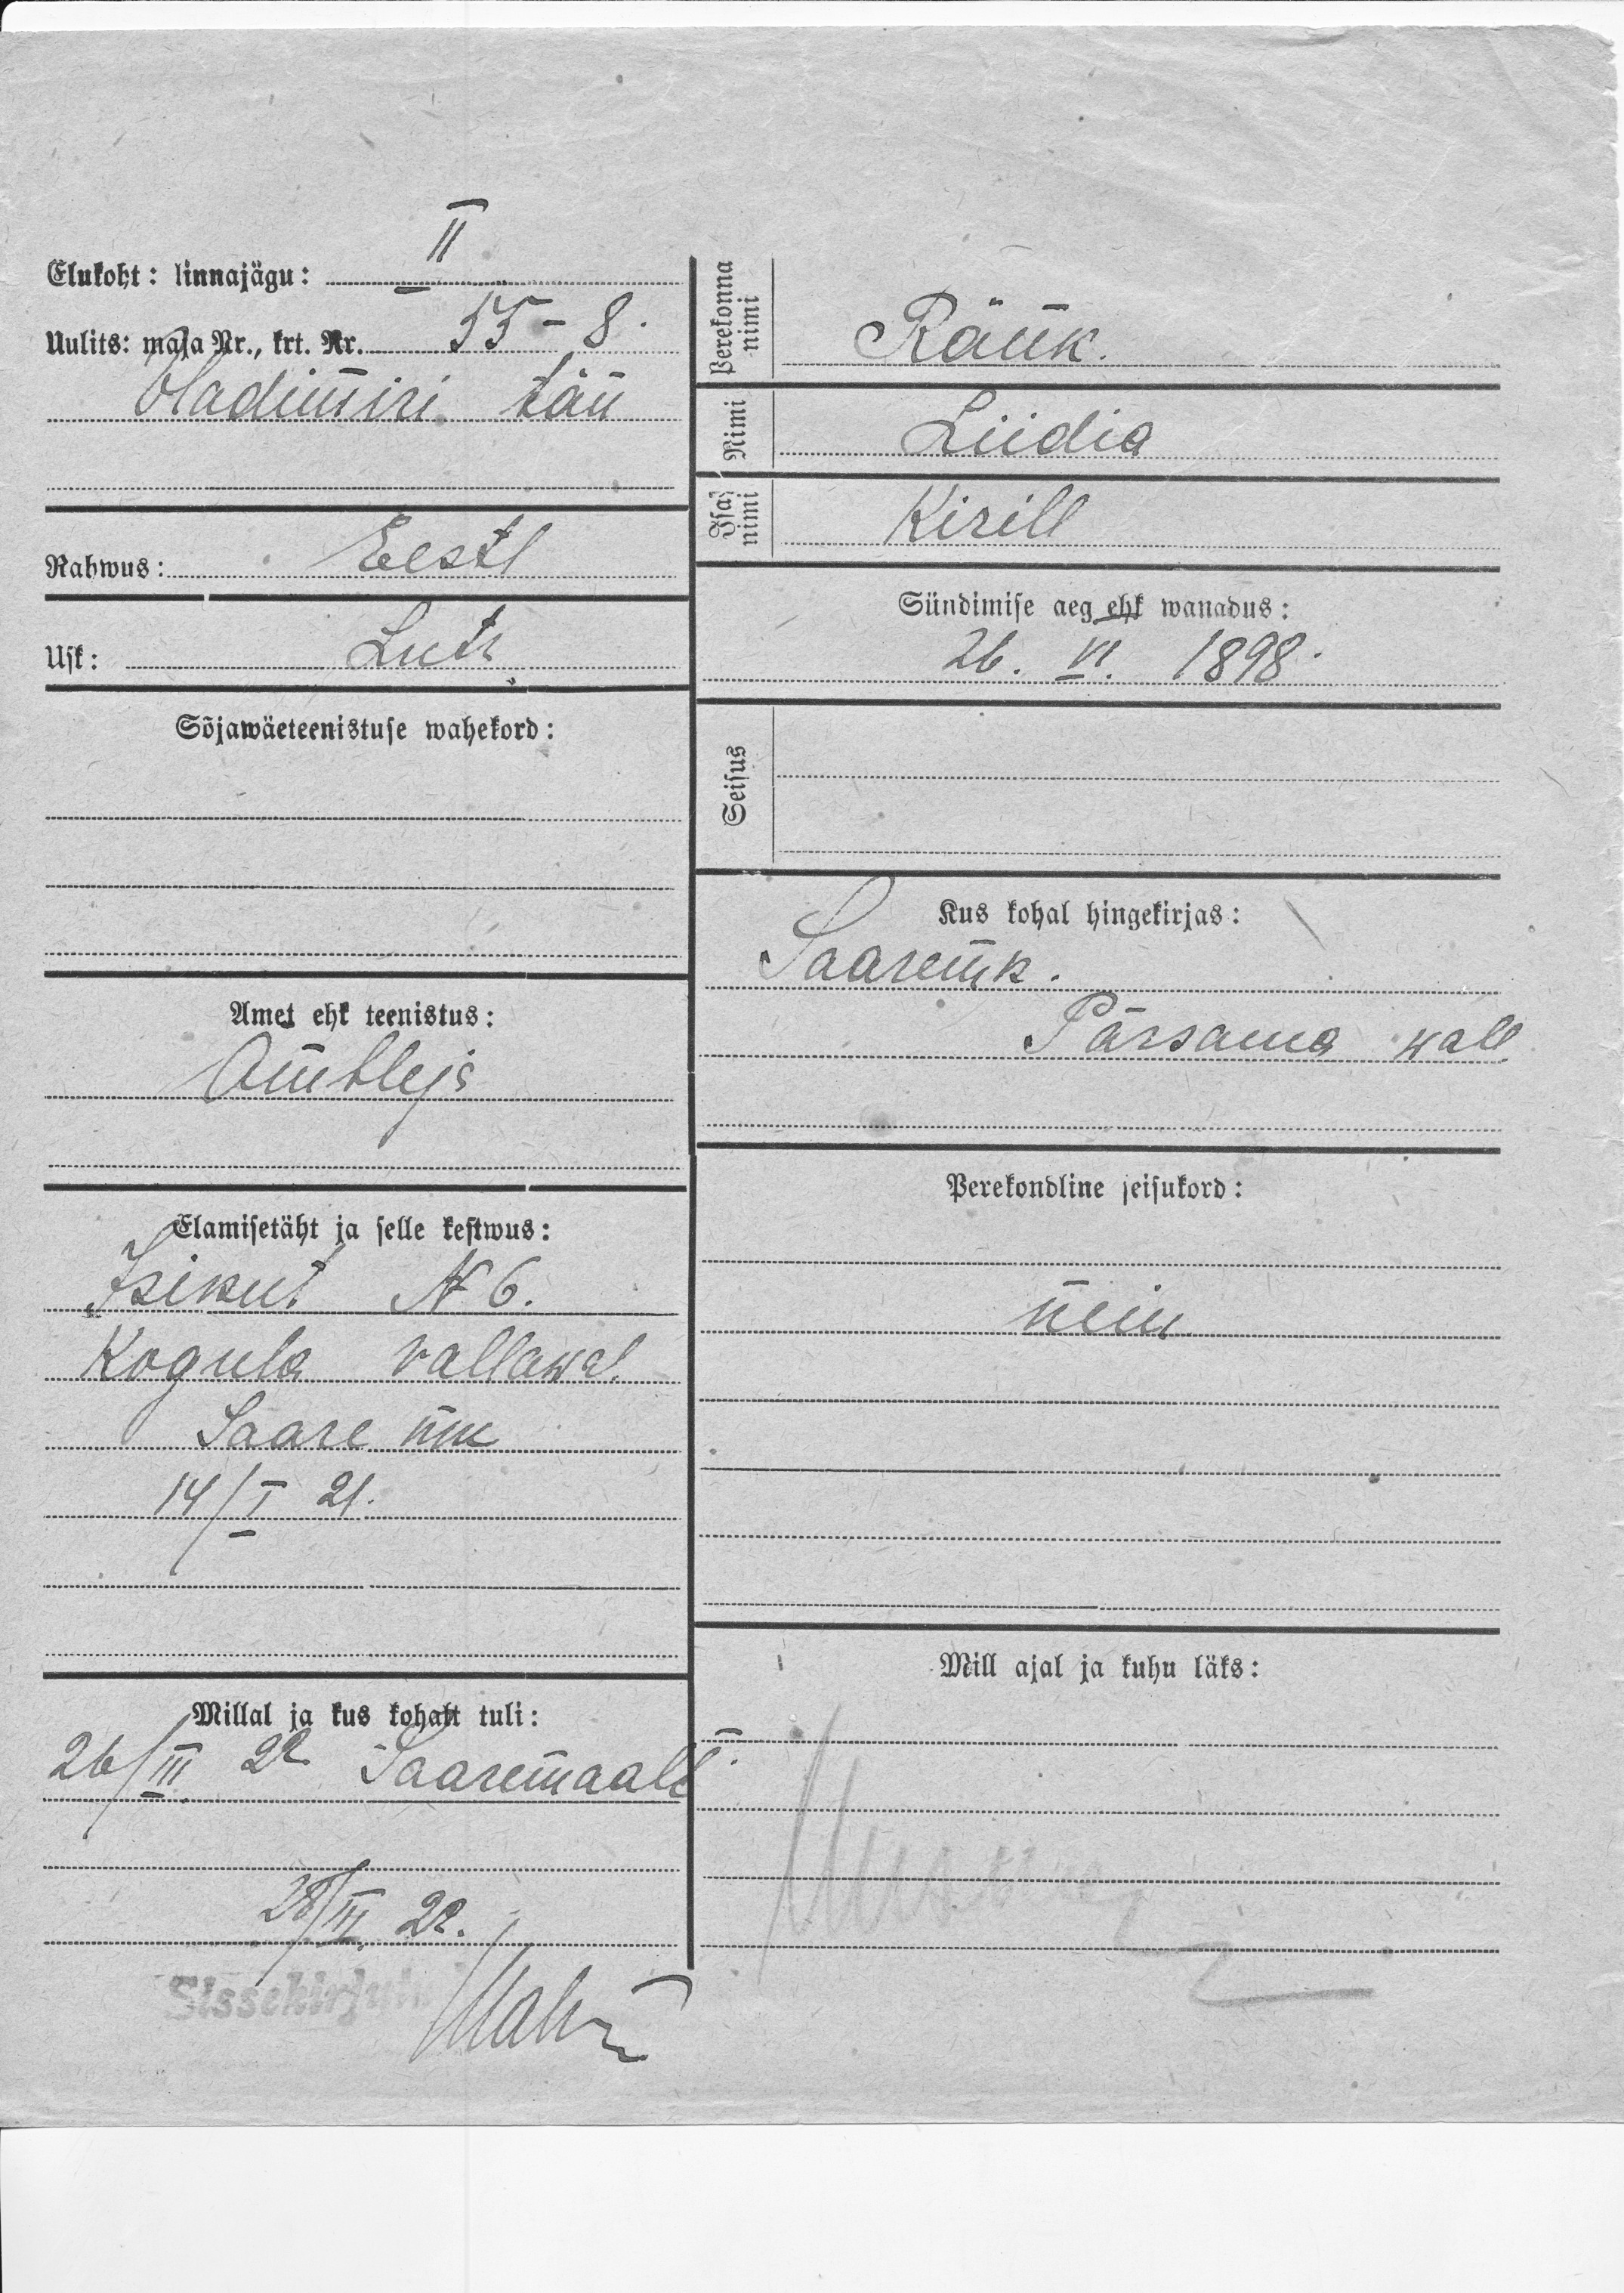 Elukoht: linnajägu: II
Uulits: maja Nr., krt. Nr. 55-8.
Wladimiri tän
Rahwus: Eestl
Usk: Luth
Sõjawäeteenistuse wahekord:
Amet ehk teenistus:
Ömbleja
Elamisetäht ja selle kestwus:
Isikut N 6.
Kogula vallawal.
Saare mk
14/I 21.
Millal ja kus kohalt tuli:
26/III 22 Saaremaalt.
28/III 22.
Perekonna nimi
Ränk.
Nimi
Liidia
Isa nimi
Kirill
Sündimise aeg ehk wanadus:
26. VI. 1898.
Seisus
Kus kohal hingekirjas:
Saaremk.
Pärsama wall
Perekondline seisukord:
nein
Mill ajal ja kuhu läks: